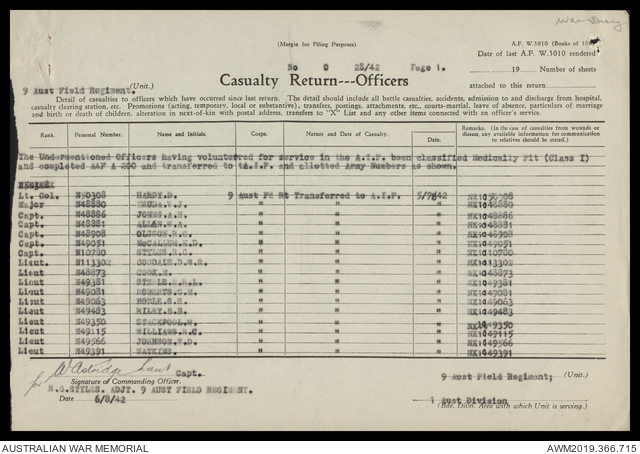 War Diary
(Margin for Filing Purposes)
A.F. W.3010 (Books of 100)
Date of last A.F. W.3010 rendered
No O 28/42 Page 1.
19 Number of sheets
9 Aust Field Regiment. (Unit.)
Casualty Return---Officers
attached to this return
Detail of casualties to officers which have occurred since last return. The detail should include all battle casualties, accidents, admission to and discharge from hospital,
casualty clearing station, etc. Promotions (acting, temporary, local or substantive), transfers, postings, attachments, etc., courts-martial, leave of absence, particulars of marriage
and birth or death of children, alteration in next-of-kin with postal address, transfers to "X" List and any other items connected with an officer's service.
Rank. Personal Number. Name and Initials. Corps. Nature and Date of Casualty. Date. Remarks. (In the case of casualties from wounds or disease, any available information for communication to relatives should be stated.)
The Undermentioned Officers having volunteered for service in the A.I.F. been classified Medically Fit (Class I)
and completed AAF A 200 and transferred to A.I.F. and allotted Army Numbers as shown.
Lt. Col. N50308 HARDY.D. 9 Aust Fd Rt Transferred to A.I.F. 5/7/42 NX150308
Major N48880 " " " NX148880
Capt. N48886 JONES.A.N. " " " NX148886
Capt. N48881 ALLAN.W.A. " " " NX148881
Capt. N48908 OLSSON.R.G. " " " NX148908
Capt. N49051 McCALLUM.K.D. " " " NX149051
Capt. N10780 STYLES.R.G. " " " NX110780
Lieut. N113302 GOODALE.D.W.R. " " " NX113302
Lieut N48873 COOK.H. " " " NX148873
Lieut N49381 " " " NX149381
Lieut N49081 ROBERTS.G.M. " " " NX149081
Lieut N49063 NOBLE.S.H. " " " NX149063
Lieut N49483 RILEY.B.B. " " " NX149483
Lieut N49350 STACKPOOL.W. " " " NX149350
Lieut N49115 WILLIAMS.R.C. " " " NX149115
Lieut N49566 JOHNSON.T.D. " " " NX149566
Lieut N49391 WATKINS. " " " NX149391
for Lieut Capt.
Signature of Commanding Officer.
R.G.STYLES. ADJT. 9 AUST FIELD REGIMENT.
Date 6/8/42
9 Aust Field Regiment; (Unit.)
1 Aust Division
(Bde. Divn. Area with which Unit is serving.)
AUSTRALIAN WAR MEMORIAL
AWM2019.366.715